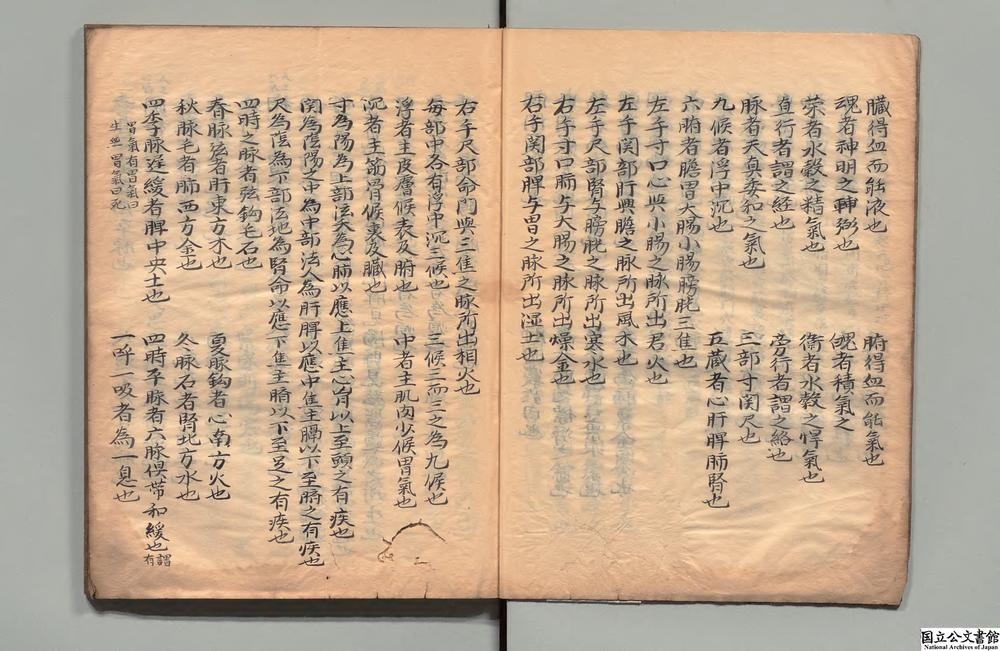 臓得血而能液也　腑得血而能氣也
魂者神明之輔弼也　魄者積氣之
荣者水穀之精氣也　衛者水穀之悍氣也
直行者謂之經也　旁行者謂之絡也
脉者天真委和之氣也　三部寸関尺也
九候者浮中沉也　五蔵者心肝脾肺腎也
六腑者膽胃大腸小腸膀胱三焦也
左手寸口心與小腸之脉所出君火也
左手関部肝與膽之脉所出風木也
左手尺部腎与膀胱之脉所出寒水也
右手寸口肺与大腸之脉所出燥金也
右手関部脾与胃之脉所出湿土也
右手尺部命門與三焦之脉所出相火也
每部中各有浮中沉三候也三候三而三之為九候也
浮者主皮膚候表及腑也中者主肌肉以候胃氣也
沉者主筋骨候裏及臓也
寸為陽為上部法天為心肺以應上焦主心胷以上至頭之有疾也
関為陰陽之中為中部法人為肝脾以應中焦主膈以下至臍之有疾也
尺為陰為下部法地為腎命以應下焦主臍以下至足之有疾也
四時之脉者弦鈎毛石也
春脉弦者肝東方木也　夏脉鈎者心南方火也
秋脉毛者肺西方金也　冬脉石者腎北方水也
四季脉遅緩者脾中央土也　四時平脉者六脉俱帯和緩也謂有
胃氣有胃氣曰生無胃氣曰死　一呼一吸者為一息也
国立公文書館
National Archives of Japan